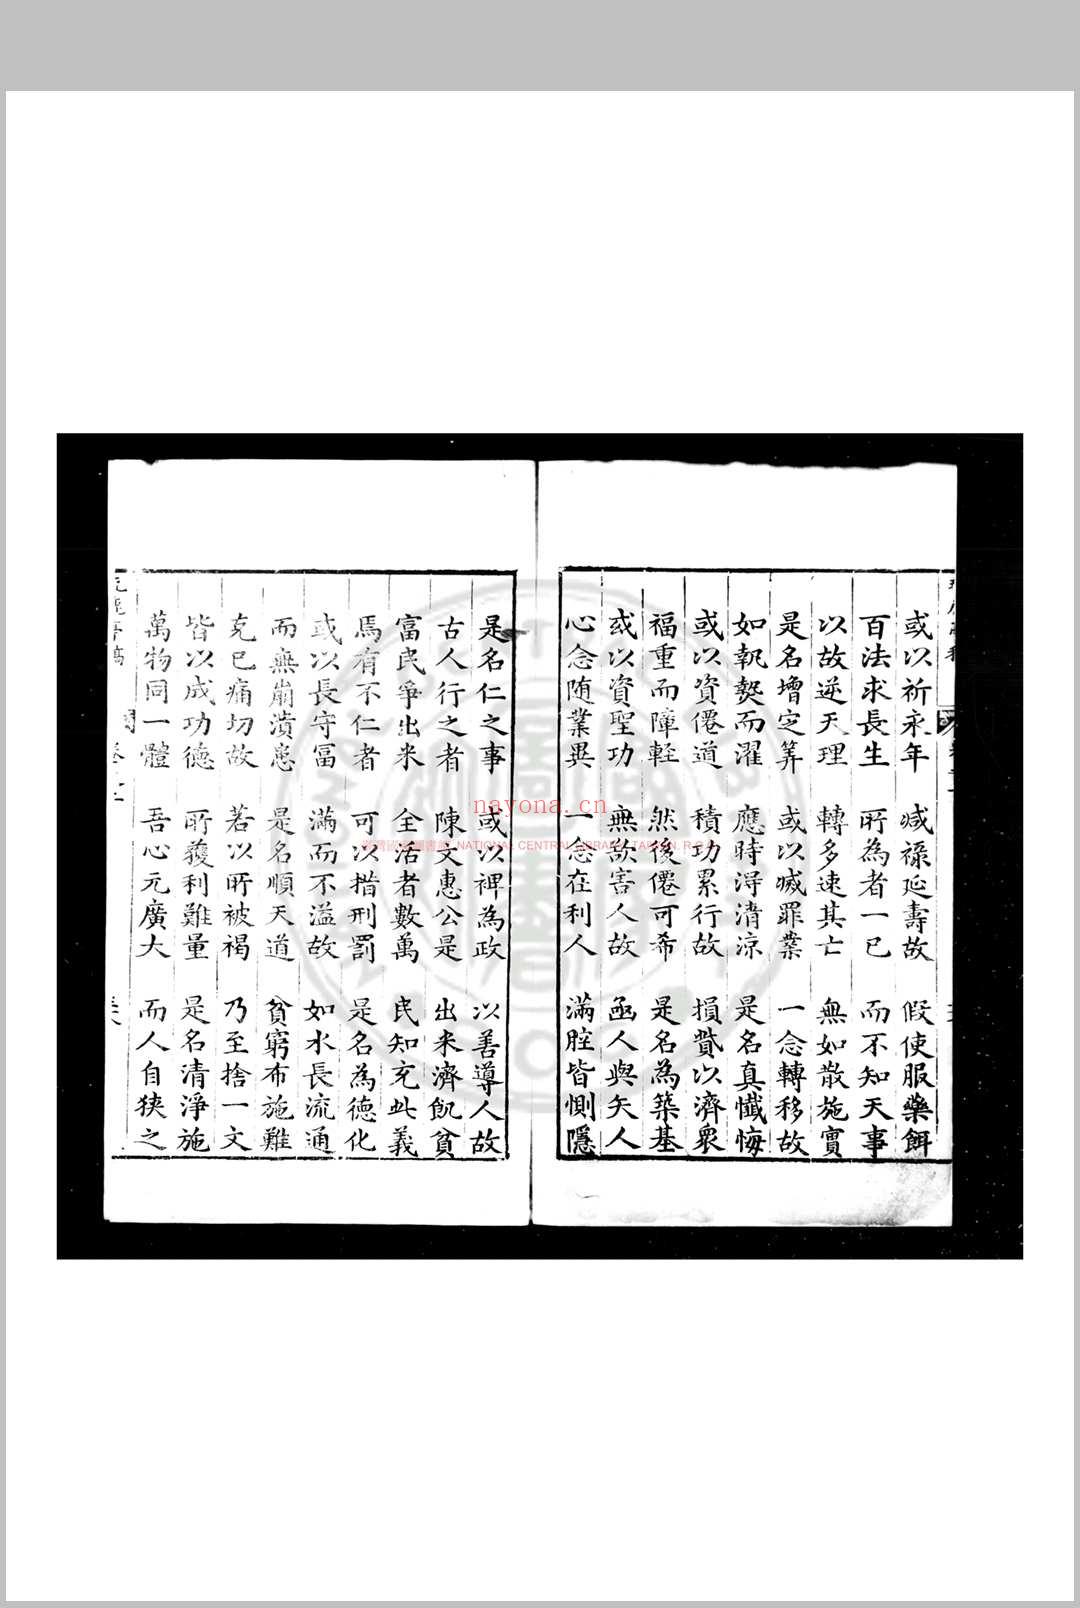 或以祈永年 减祿延壽故 假使服藥餌
百法求長生 所為者一已 而不知天事
以故逆天理 轉多速其亡 無如散施實
是名增定筭 或以减罪業 一念轉移故
如執𤍠而濯 應時淂清凉 是名真懴悔
或以資僊道 積功累行故 損貲以濟衆
福重而障輕 然後僊可希 是名為築基
或以資聖功 無欲害人故 函人與矢人
心念随業異 一念在利人 滿腔皆惻隱
是名仁之事 或以裨為政 以善導人故
古人行之者 陳文惠公是 出米濟飢貧
富民爭出米 全活者數萬 民知充此義
焉有不仁者 可以措刑罰 是名為德化
或以長守冨 滿而不溢故 如水長流通
而無崩潰患 是名順天道 貧窮布施難
克已痛切故 若以所被褐 乃至捨一文
皆以成功德 所獲利難量 是名清淨施
萬物同一體 吾心元廣大 而人自狹之
nayona.cn
NATIONAL CENTRAL LIBRARY, TAIWAN, R.O.C.